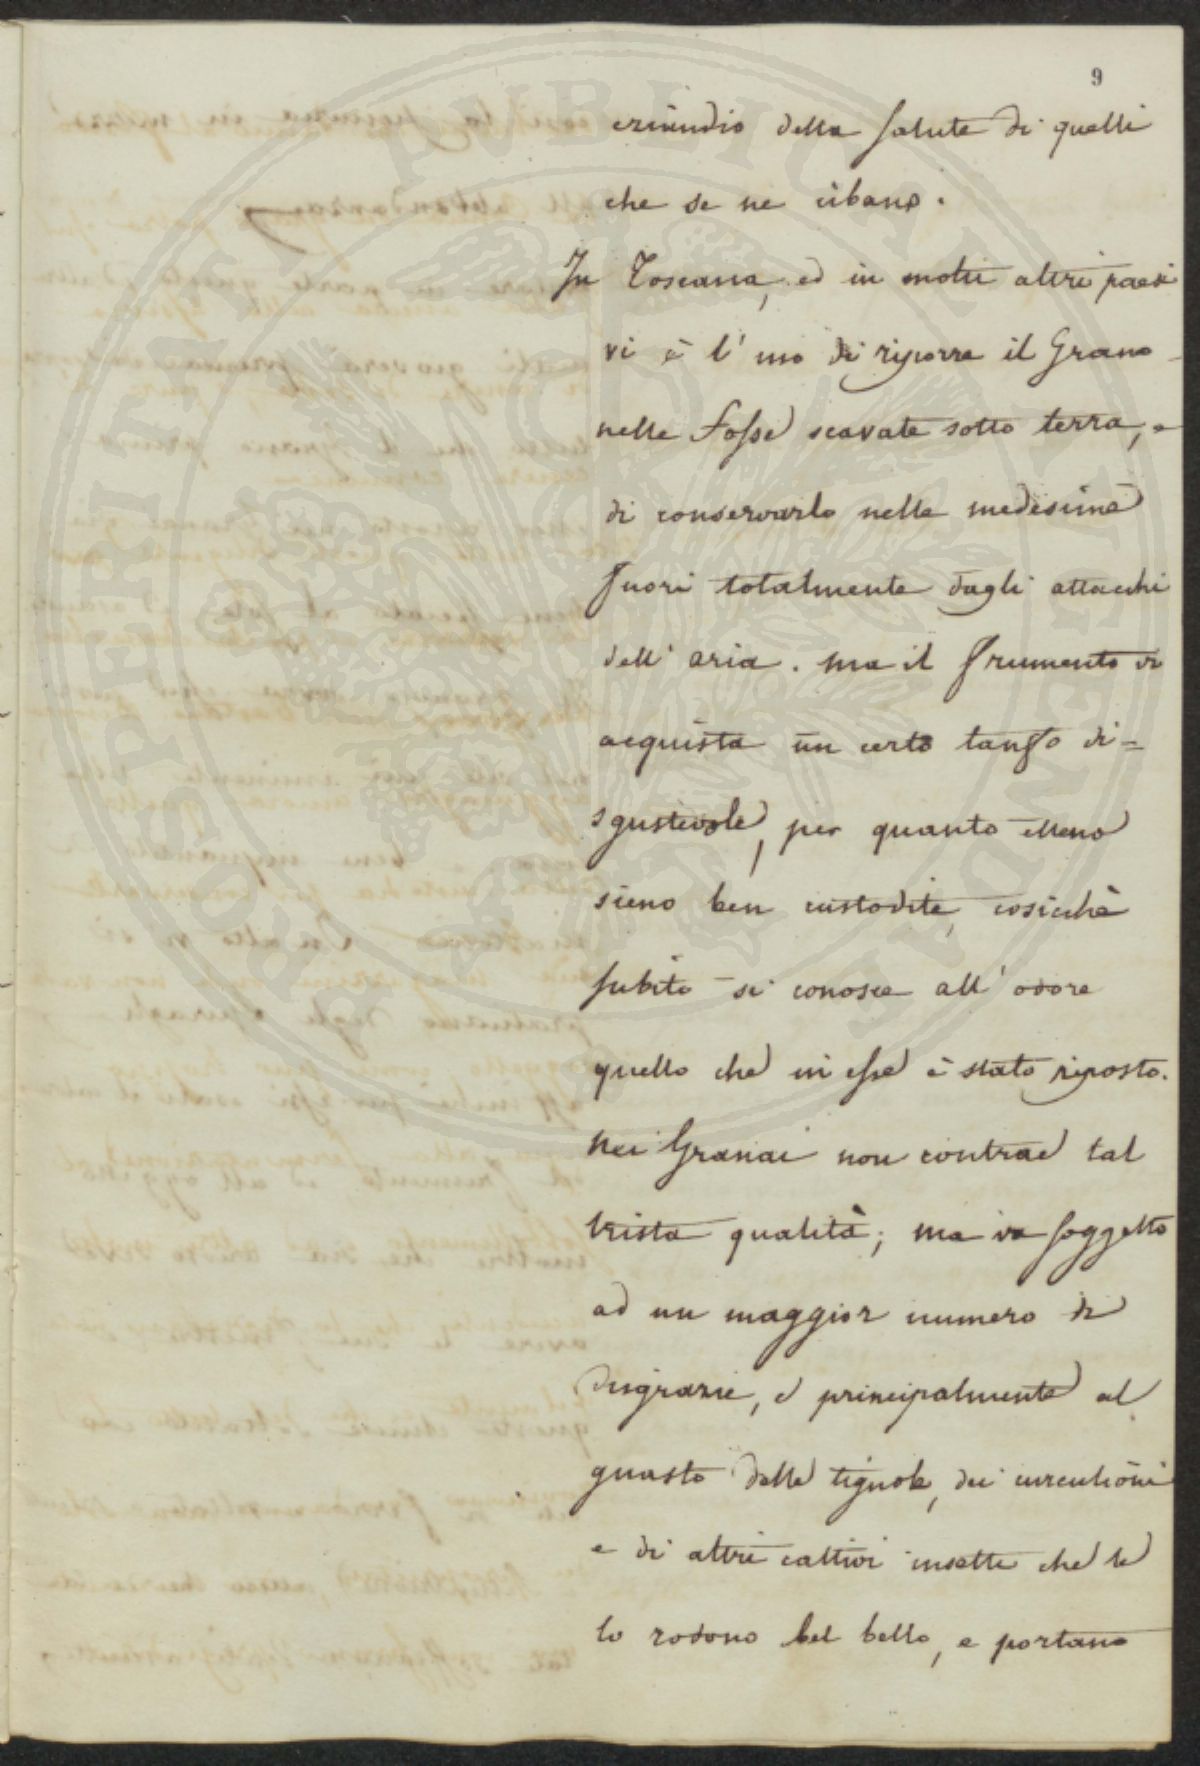 9
della salute di quelli
che se ne cibano.
In Toscana, ed in molti altri paesi
vi è l'uso di riporre il Grano
nelle Fosse scavate sotto terra, e
di conservarlo nelle medesime
fuori totalmente dagli attacchi
dell'aria. ma il frumento vi
acquista un certo tanfo di=
sgustevole, per quanto elleno
sieno ben custodite, cosicchè
subito si conosce all'odore
quello che in esse è stato riposto.
Nei Granai non contrae tal
trista qualità; ma va soggetto
ad un maggior numero di
disgrazie, e principalmente al
guasto delle tignole, dei curculioni
e di altri cattivi insetti che se
lo rodono bel bello, e portano
PROSPERITATI PUBLICAE AUGENDAE